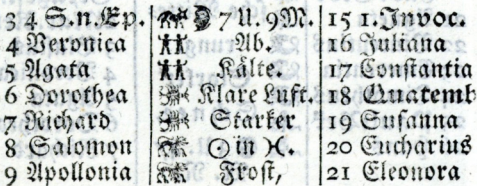 3 4 S. n. Ep. ☽ 7 U. 9 M. 15 1. Invoc.
4 Veronica Ab. 16 Juliana
5 Agata Kälte. 17 Constantia
6 Dorothea Klare Luft. 18 Quatemb
7 Richard Starker 19 Susanna
8 Salomon ☉ in ♓. 20 Eucharius
9 Apollonia Frost, 21 Eleonora